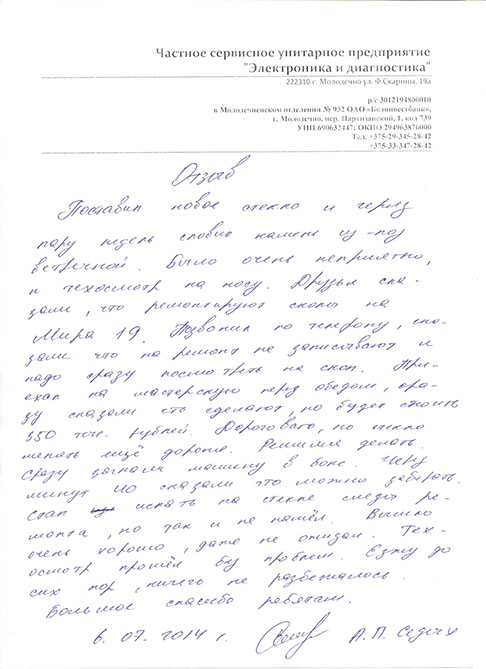 Частное сервисное унитарное предприятие
"Электроника и диагностика"
222310 г. Молодечно ул. Ф.Скарины, 19а
р/с 3012194800010
в Молодечненском отделении № 932 ОАО «Белинвестбанк»,
г. Молодечно, пер. Партизанский, 1, код 739
УНП 690632447; ОКПО 294963876000
Тел. +375-29-345-28-42
+375-33-347-28-42
Отзыв
Поставил новое стекло и через
пару недель словил камень из-под
встречной. Было очень неприятно,
и техосмотр на носу. Друзья ска-
зали, что ремонтируют сколы на
Мира 19. Позвонил по телефону, ска-
зали что на ремонт не записывают и
надо сразу посмотреть на скол. При-
ехал на мастерскую перед обедом, сра-
зу сказали что сделают, но будет стоить
350 тыс. рублей. Дороговато, но стекло
менять ещё дороже. Решился делать.
Сразу загнали машину в бокс. Через
минут 40 сказали что можно забирать.
Стал искать на стекле следы ре-
монта, но так и не нашёл. Вышло
очень хорошо, даже не ожидал. Тех-
осмотр прошёл без проблем. Езжу до
сих пор, ничего не разбежалось.
Большое спасибо ребятам.
6.07.2014 г. А.П.